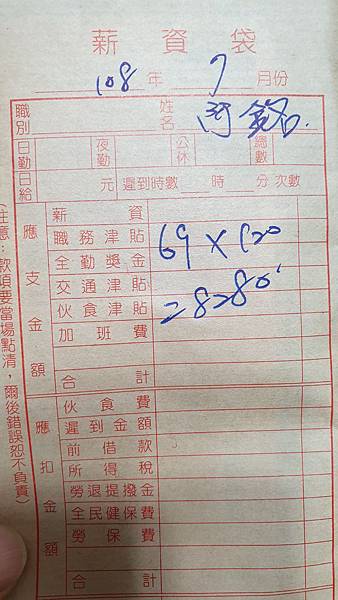 薪資袋
108 年 7 月份
職別
姓名 阿銘.
日勤 夜勤 公休 總數
日給 元 遲到時數 時 分 次數
應支金額
薪資
職務津貼
69 X 120
全勤獎金
交通津貼
伙食津貼
= 8280
加班費
合計
應扣金額
伙食費
遲到金額
前借款
所得稅
勞退提撥金
全民健保費
勞保費
合計
(注意:款項要當場點清,爾後錯誤恕不負責)